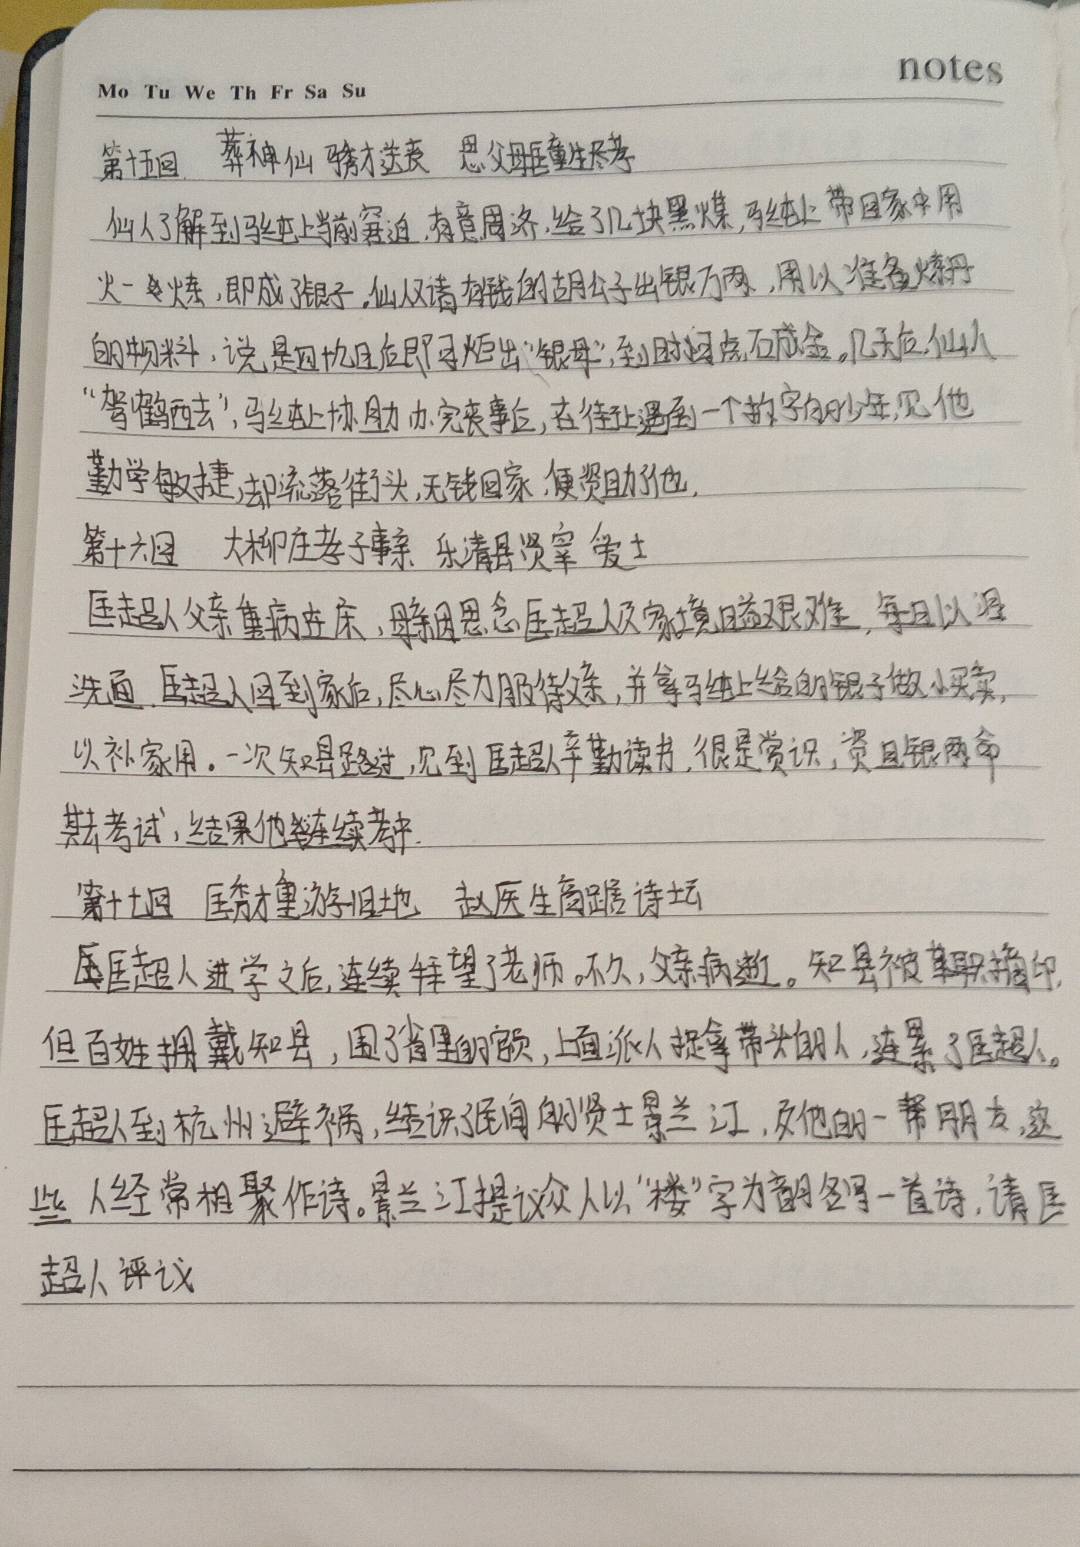 notes
Mo Tu We Th Fr Sa Su
第十五回 葬神仙马秀才送丧 思父母匡童生尽孝
仙人了解到马纯上当前窘迫,有意周济,给了几块黑煤,马纯上带回家中用
火一炼,即成了银子。仙人又请有钱的胡公子出银万两,用以准备炼丹
的物料,说是四十九日后即可炼出“银母”,到时可点石成金。几天后,仙人
“驾鹤西去”,马纯上协助办完丧事后,在街上遇到一个拆字的少年,见他
勤学敏捷,却流落街头,无钱回家,便资助了他.
第十六回 大柳庄孝子事亲 乐清县贤宰爱士
匡超人父亲重病在床,母亲因思念匡超人及家境日益艰难,每日以泪
洗面.匡超人回到家后,尽心尽力服侍父亲,并拿马纯上给的银子做小买卖,
以补家用。一次知县路过,见到匡超人辛勤读书,很是赏识,资且银两命
其去考试,结果他继连续考中.
第十七回 匡秀才重游旧地 赵医生高踞诗坛
匡超人进学之后,连续拜望了老师。不久,父亲病逝。知县被革职摘印,
但百姓拥戴知县,围了省里的官员,上面派人捉拿带头的人,连累了匡超人。
匡超人到杭州避祸,结识了民间的贤士景兰江,及他的一帮朋友,这
些人经常相聚作诗。景兰江提议众人以“楼”字为韵各写一首诗,请匡
超人评议